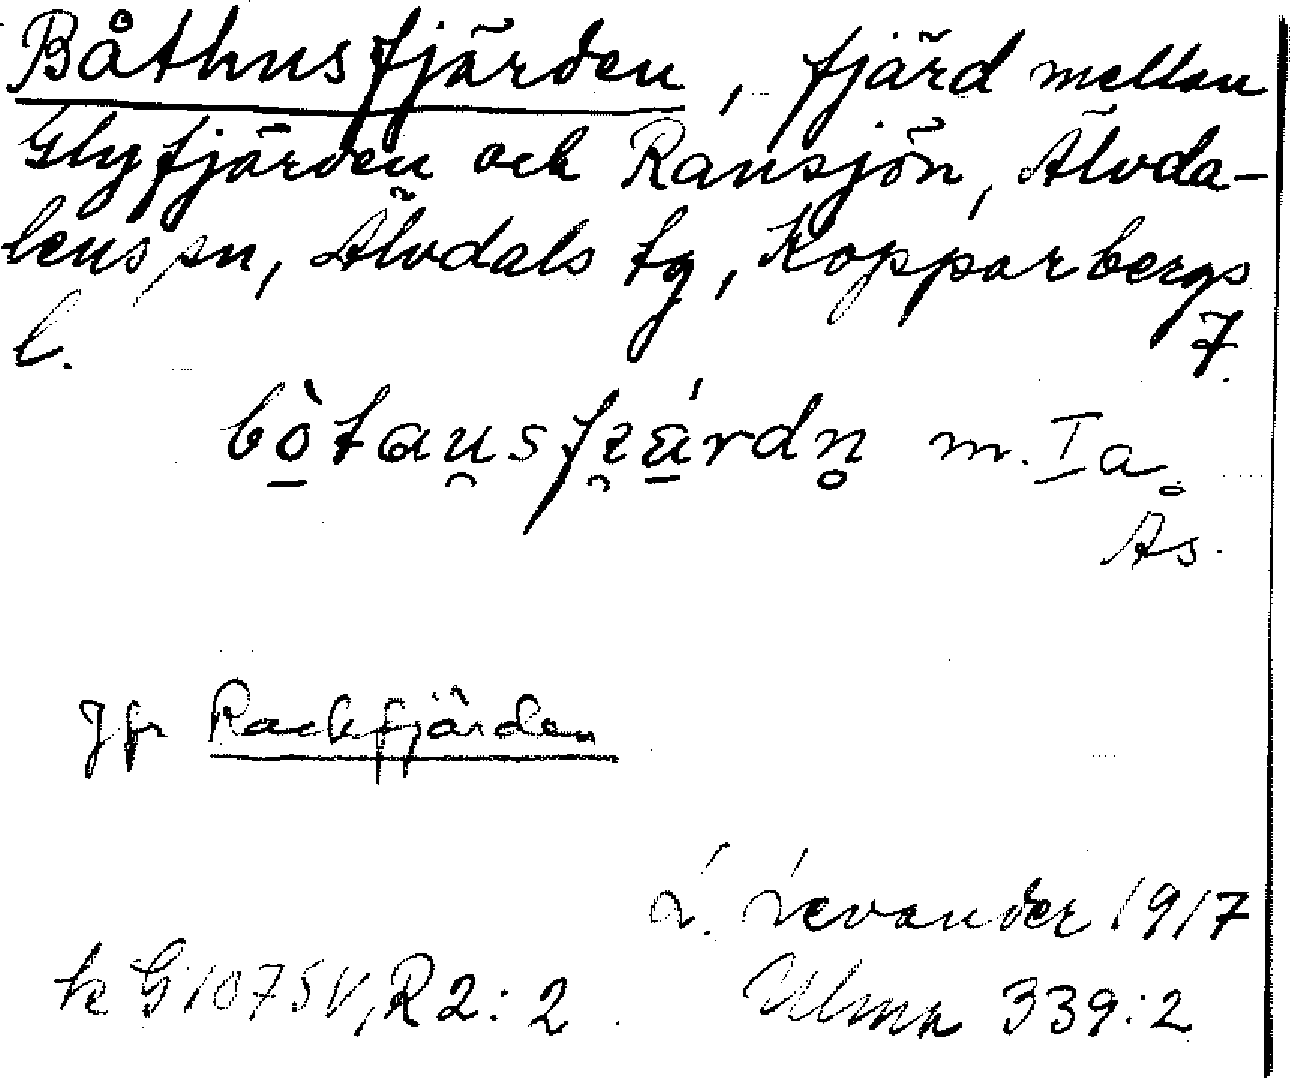 Båthusfjärden, fjärd mellan
Glyfjärden och Ransjön, Älvda-
lens sn, Älvdals tg, Kopparbergs
l. 7.
bò̠tau̯sfi̯ä̠́rdn̥ m. Ia
Ås.
Jfr Rackfjärden
L. Levander 1917
k G 1075 V, R 2:2. Ulma 339:2